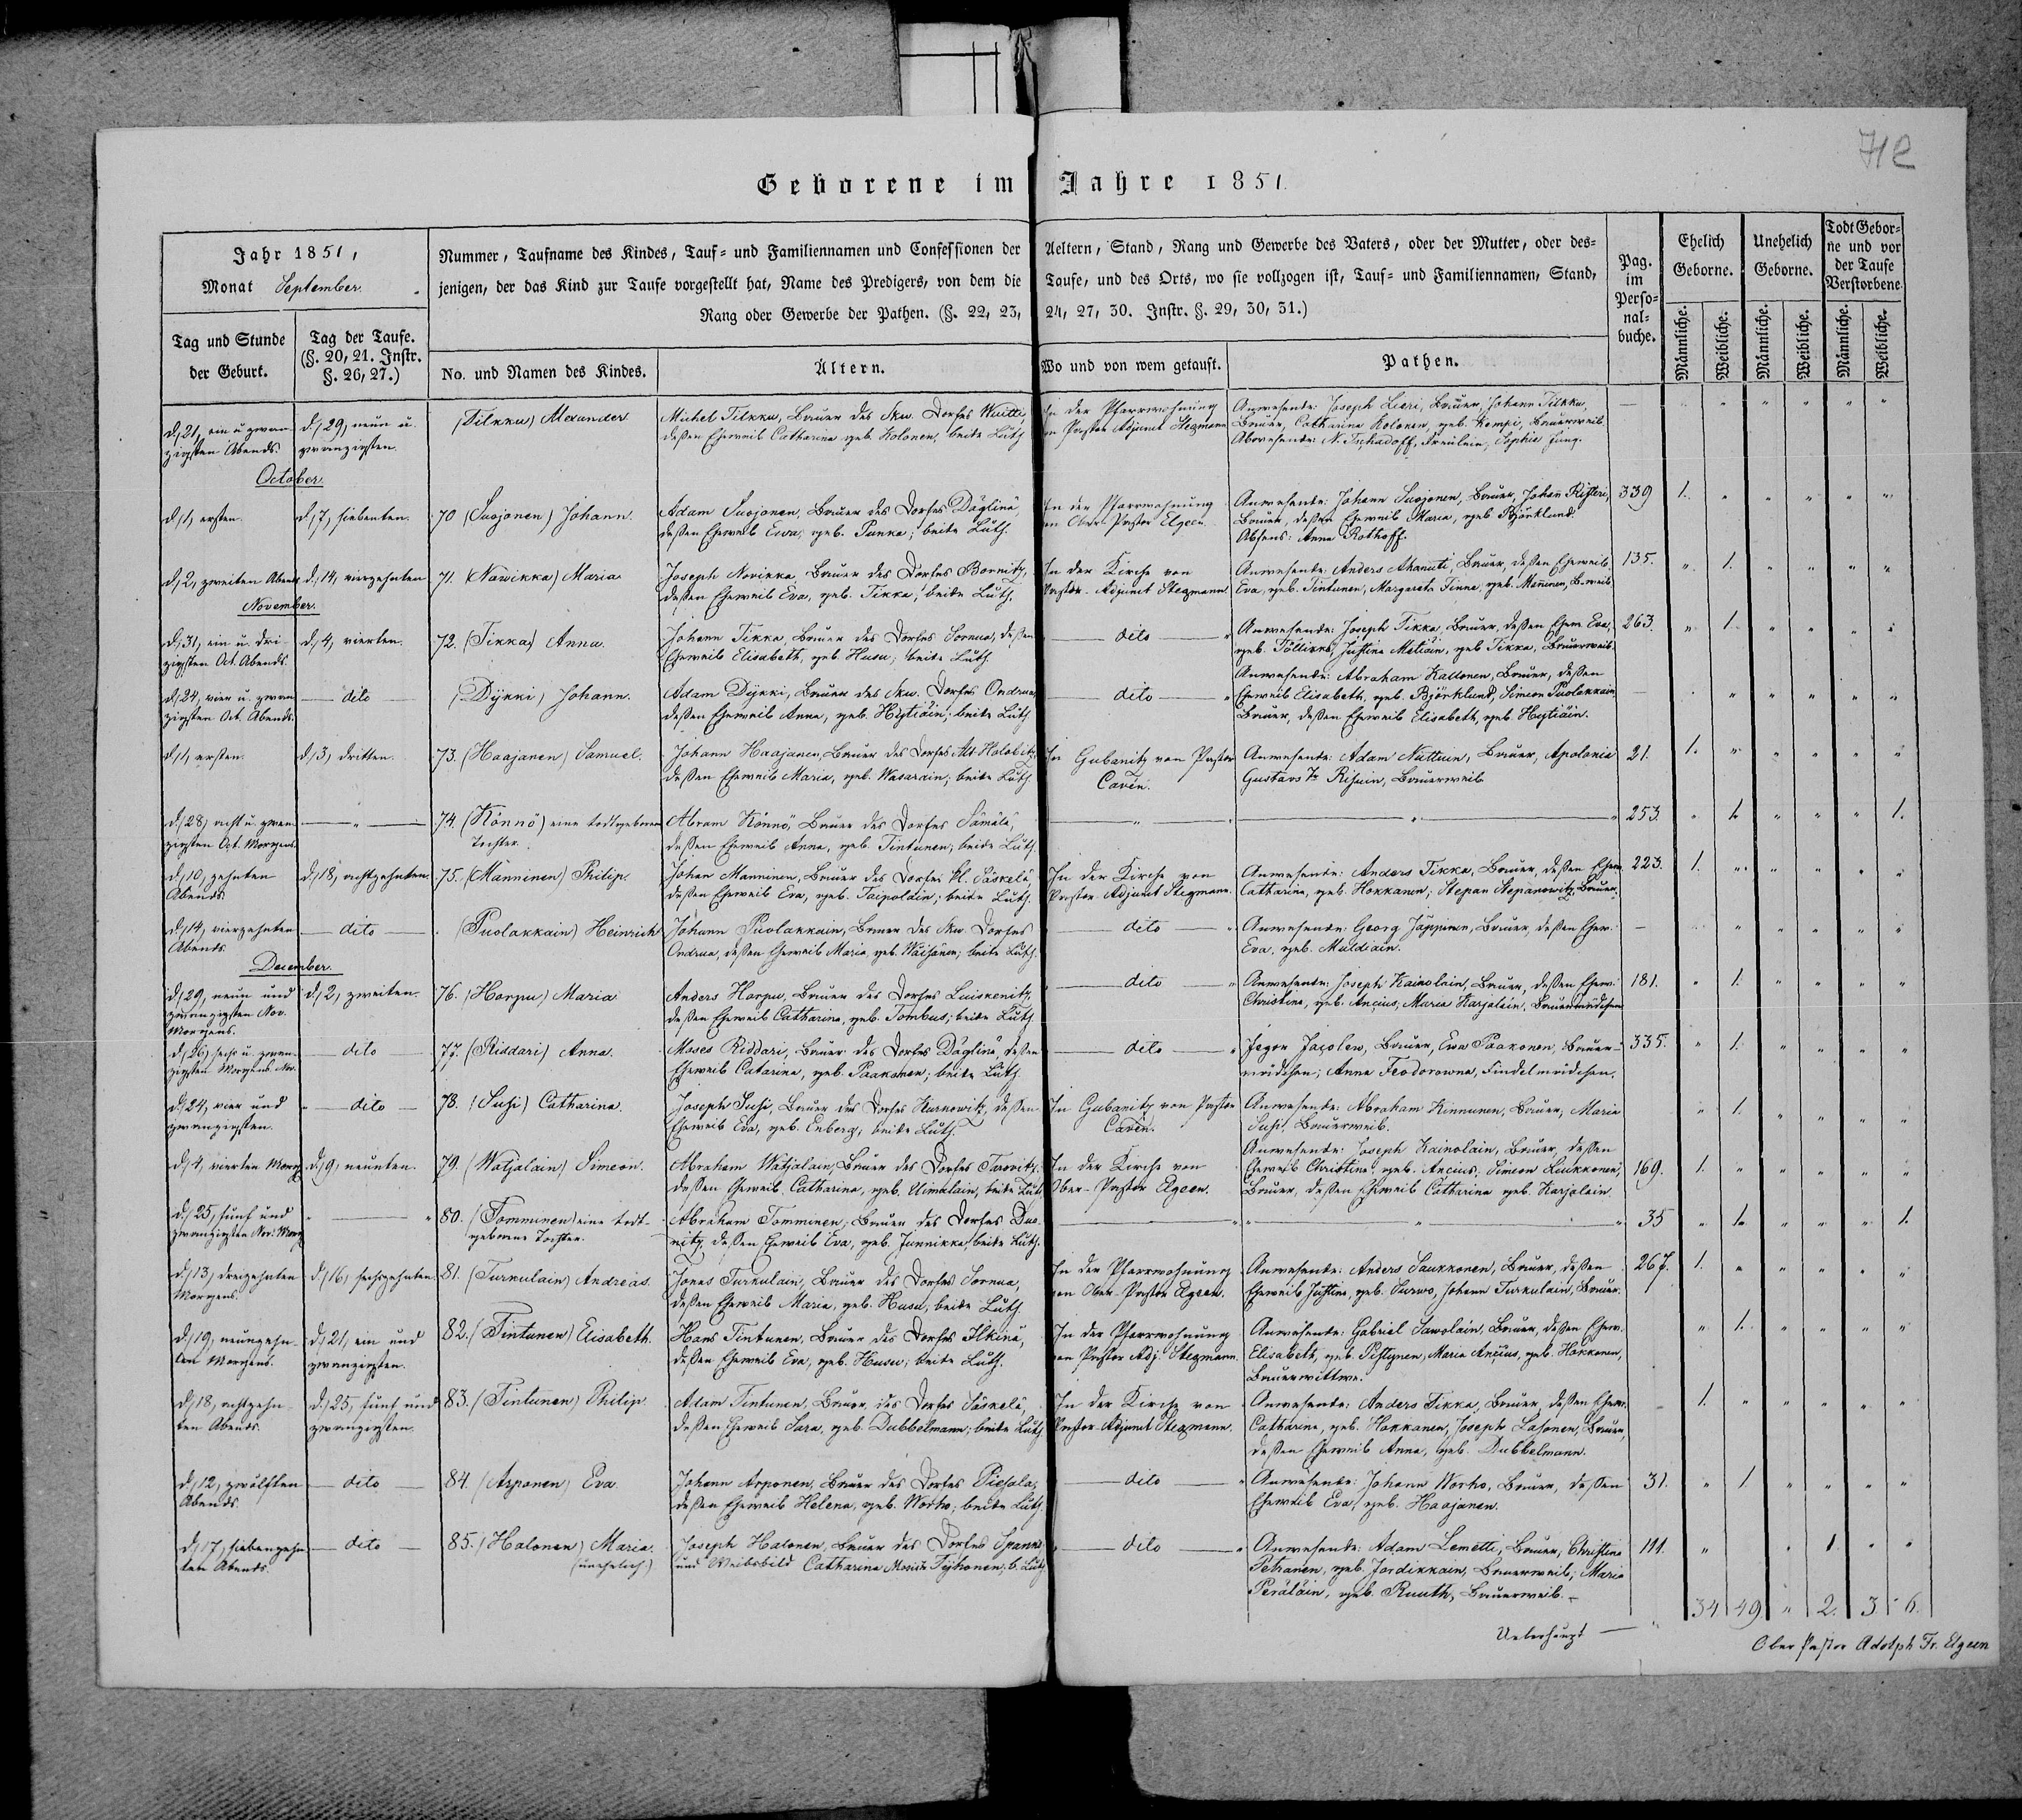 712
Geborene im Jahre 1851.
Jahr 1851,
Monat September.
Tag und Stunde
der Geburt.
Tag der Taufe.
(§. 20, 21. Instr.
§. 26, 27.)
Nummer, Taufname des Kindes, Tauf- und Familiennamen und Confessionen der Aeltern, Stand, Rang und Gewerbe des Vaters, oder der Mutter, oder des-
jenigen, der das Kind zur Taufe vorgestellt hat, Name des Predigers, von dem die Taufe, und des Orts, wo sie vollzogen ist, Tauf- und Familiennamen, Stand,
Rang oder Gewerbe der Pathen. (§. 22, 23, 24, 27, 30. Instr. §. 29, 30, 31.)
No. und Namen des Kindes.
Ältern.
Wo und von wem getauft.
Pathen.
Pag.
im
Perso-
nal-
buche.
Ehelich
Geborne.
Unehelich
Geborne.
Todt Gebor-
ne und vor
der Taufe
Verstorbene.
Männliche.
Weibliche.
Männliche.
Weibliche.
Männliche.
Weibliche.
d. 21, ein u. zwan-
zigsten Abends.
d. 29, neun u.
zwanzigsten.
(Tilkku) Alexander
Michel Tilkku, Bauer des Skw. Dorfes Wuitti,
deßen Eheweib Catharina geb. Kolonen, beide Luth.
In der Pfarrwohnung
von Pastor Adjunct Stegmann
Anwesende: Joseph Lieri, Bauer, Johann Tilkku,
Bauer, Catharina Kolonen, geb. Kempi, Bauerweib.
Abwesende: N. Tschadoff, Fräulein, Sophie Jung.
October.
d. 1, ersten.
d. 7, siebenten.
70 (Suojonen) Johann.
Adam Suojonen, Bauer des Dorfes Däglinä,
deßen Eheweib Ewa, geb. Punka; beide Luth.
In der Pfarrwohnung
von Ober-Pastor Elgeen.
Anwesende: Johann Suojonen, Bauer, Johann Risteri,
Bauer, deßen Eheweib Maria, geb. Björklund.
Absens: Anna Rothoff.
339 1.
d. 2, zweiten Abends
d. 14, vierzehnten
71. (Nawikka) Maria
Joseph Novikka, Bauer des Dorfes Bornitz,
deßen Eheweib Eva, geb. Tikka; beide Luth.
In der Kirche von
Pastor-Adjunct Stegmann.
Anwesende: Anders Ahanuti, Bauer, deßen Eheweib
Eva, geb. Tintunen, Margareta Tinna, geb. Mäninen, B-weib.
135. 1.
November.
d. 31, ein u. drei-
zigsten Oct. Abends.
d. 4, vierten.
72. (Tikka) Anna.
Johann Tikka, Bauer des Dorfes Sornua, deßen
Eheweib Elisabeth, geb. Husu; beide Luth.
dito
Anwesende: Joseph Tikka, Bauer, deßen Ehew. Eva,
geb. Töllikkö, Justina Meliäin, geb. Tikka, Bauerweib.
263 1.
d. 24, vier u. zwan-
zigsten Oct. Abends.
dito
(Dijkki) Johann.
Adam Dijkki, Bauer des Skw. Dorfes Ondrua,
deßen Eheweib Anna, geb. Hyjtiäin; beide Luth.
dito
Anwesende: Abraham Kallonen, Bauer, deßen
Eheweib Elisabeth, geb. Björklund, Simeon Puolakkain,
Bauer, deßen Eheweib Elisabeth, geb. Hyjtiäin.
d. 1, ersten.
d. 3, dritten.
73. (Haajanen) Samuel.
Johann Haajanen, Bauer des Dorfes Alt-Holobitz,
deßen Eheweib Maria, geb. Wasarain; beide Luth.
In Gubanitz von Pastor
Caven.
Anwesende: Adam Nuttuin, Bauer, Apolonia
Gustavs Tr. Risuin, Bauerweib.
21. 1.
d. 28, acht u. zwan-
zigsten Oct. Morgens.
74. (Könnö) eine todtgeborene
Tochter.
Abram Könnö, Bauer des Dorfes Sämälä,
deßen Eheweib Anna, geb. Tintunen; beide Luth.
253. 1. 1.
d. 10, zehnten
Abends.
d. 18, achtzehnten.
75. (Männinen) Philip.
Johan Manninen, Bauer des Dorfes Kl. Säskelä,
deßen Eheweib Eva, geb. Taipolain; beide Luth.
In der Kirche von
Pastor-Adjunct Stegmann.
Anwesende: Anders Tikka, Bauer, deßen Ehew.
Catharina, geb. Hokkanen, Stepan Stepanowitz, Bauer.
223. 1.
d. 14, vierzehnten
Abends.
dito
(Puolakkain) Heinrich
Johann Puolakkain, Bauer des Skw. Dorfes
Ondrua, deßen Eheweib Maria, geb. Wäisänen; beide Luth.
dito
Anwesende: Georg Jäppinen, Bauer, deßen Ehew.
Eva, geb. Muldiain.
December.
d. 29, neun und
zwanzigsten Nov.
Morgens.
d. 2, zweiten.
76. (Horpu) Maria
Anders Horpu, Bauer des Dorfes Luiskenitz,
deßen Eheweib Catharina, geb. Tombus; beide Luth.
dito
Anwesende: Joseph Kainolain, Bauer, deßen Ehew.
Christina, geb. Ancius, Maria Karjalain, Bauermädchen
181. 1.
d. 26, sechs u. zwan-
zigsten Morgens Nov.
dito
77. (Riddari) Anna.
Moses Riddari, Bauer des Dorfes Däglinä, deßen
Eheweib Catarina, geb. Paakonen; beide Luth.
dito
Jegor Jacolew, Bauer, Ewa Paakonen, Bauer-
mädchen; Anna Feodorowna, Findelmädchen.
335. 1.
d. 24, vier und
zwanzigsten.
dito
78. (Susi) Catharina.
Joseph Susi, Bauer des Dorfes Kurkowitz, deßen
Eheweib Eva, geb. Enberg; beide Luth.
In Gubanitz von Pastor
Caven.
Anwesende: Abraham Kinnunen, Bauer, Maria
Susi, Bauerweib.
1.
d. 4, vierten Morg.
d. 9, neunten.
79. (Watjalain) Simeon.
Abraham Watjalain, Bauer des Dorfes Torovitz,
deßen Eheweib Catharina, geb. Uimalain, beide Luth.
In der Kirche von
Ober-Pastor Elgeen.
Anwesende: Joseph Kainolain, Bauer, deßen
Eheweib Christina, geb. Ancius, Simeon Liukkonen,
Bauer, deßen Eheweib Catharina geb. Karjalain.
169. 1.
d. 25, fünf und
zwanzigsten Nov. Morg.
80. (Tomminen) eine todt-
geborne Tochter.
Abraham Tomminen, Bauer des Dorfes Dus-
nitz, deßen Eheweib Eva, geb. Junnikka, beide Luth.
35 1. 1.
d. 13, dreizehnten
Morgens.
d. 16, sechszehnten
81. (Turkulain) Andreas.
Jonas Turkulain, Bauer des Dorfes Sornua,
deßen Eheweib Maria, geb. Husu; beide Luth.
In der Pfarrwohnung
von Ober-Pastor Elgeen.
Anwesende: Anders Saukkonen, Bauer, deßen
Eheweib Justina, geb. Turwo, Johann Turkulain, Bauer.
267. 1.
d. 19, neunzehn-
ten Morgens.
d. 21, ein und
zwanzigsten.
82. (Tintunen) Elisabeth.
Hans Tintunen, Bauer des Dorfes Ilkinä,
deßen Eheweib Eva, geb. Husu; beide Luth.
In der Pfarrwohnung
von Pastor Adj. Stegmann.
Anwesende: Gabriel Sawolain, Bauer, deßen Ehew.
Elisabeth, geb. Pistynen, Maria Ancius, geb. Hokkonen,
Bauerwittwe.
1.
d. 18, achtzehn-
ten Abends.
d. 25, fünf und
zwanzigsten.
83. (Tintunen) Philip
Adam Tintunen, Bauer, des Dorfes Säskelä,
deßen Eheweib Sara, geb. Dubbelmann; beide Luth.
In der Kirche von
Pastor-Adjunct Stegmann.
Anwesende: Anders Tikka, Bauer, deßen Ehew.
Catharina, geb. Hokkanen, Joseph Lasonen, Bauer,
deßen Eheweib Anna, geb. Dubbelmann.
1.
d. 12, zwölften
Abends.
dito
84. (Asponen) Eva
Johann Asponen, Bauer des Dorfes Piesala,
deßen Eheweib Helena, geb. Worho; beide Luth.
dito
Anwesende: Johann Worho, Bauer, deßen
Eheweib Eva, geb. Haajanen.
31. 1
d. 17, siebenzehn-
ten Abends.
dito
85. (Halonen) Maria.
(unehelich)
Joseph Halonen, Bauer des Dorfes Spankä
und Weibsbild Catharina Maria Tyjhonen; b. Luth.
dito
Anwesende: Adam Lemetti, Bauer, Christina
Petranen, geb. Jordikkain, Bauerweib; Maria
Peräläin, geb. Ruuth, Bauerweib.
111. 1.
34 49 " 2. 3. 6.
Ueberhaupt
Ober Pastor Adolph Fr. Elgeen